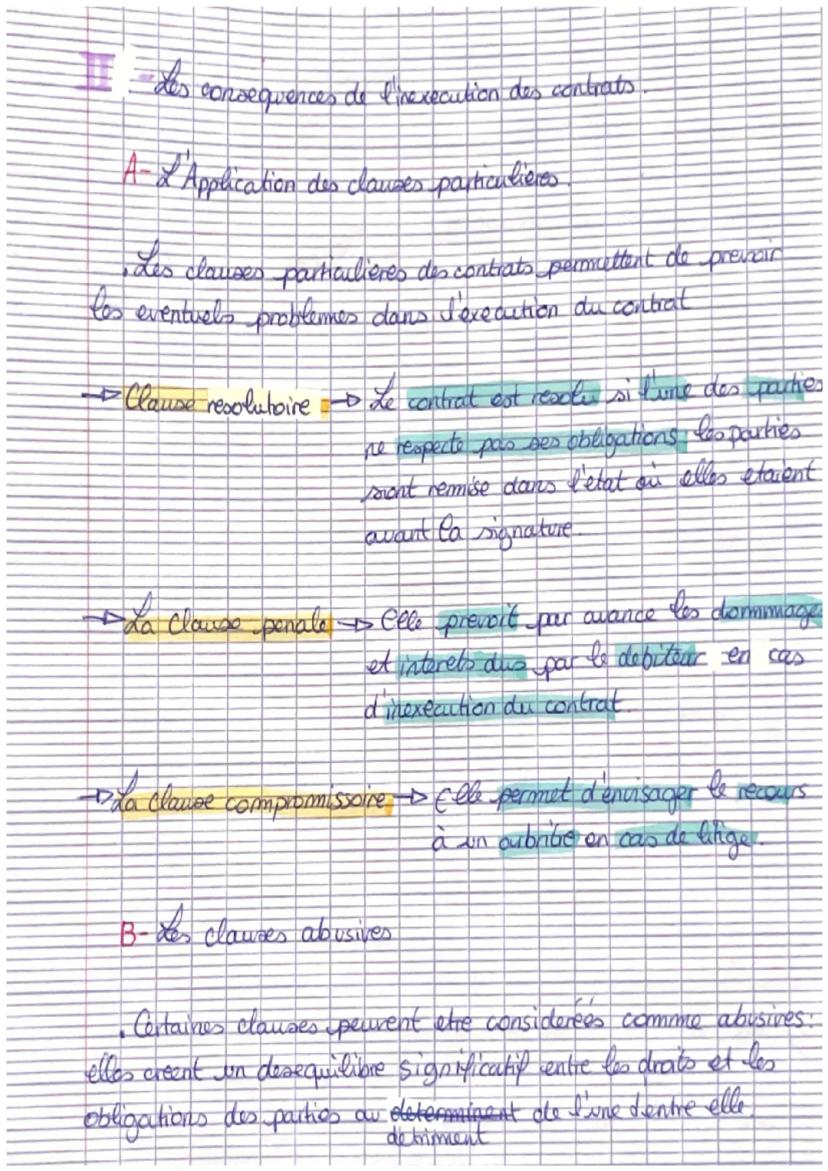 II - Les consequences de l'inexecution des contrats.
A- L'Application des clauses particulières.
. Les clauses particulières des contrats permettent de prevoir
les eventuels problemes dans l'execution du contrat
→ Clause resolutoire → Le contrat est resolu si l'une des parties
ne respecte pas ses obligations, les parties
sont remise dans l'état où elles etaient
avant la signature.
→ La clause penale → Elle prevoit par avance les dommage
et interets dus par le debiteur en cas
d'inexecution du contrat.
→ La clause compromissoire → Elle permet d'envisager le recours
à un arbitre en cas de litige.
B- Les clauses abusives
. Certaines clauses peuvent etre considereés comme abusives:
elles creent un desequilibre significatif entre les droits et les
obligations des parties au determinent de l'une dentre elle.
detriment